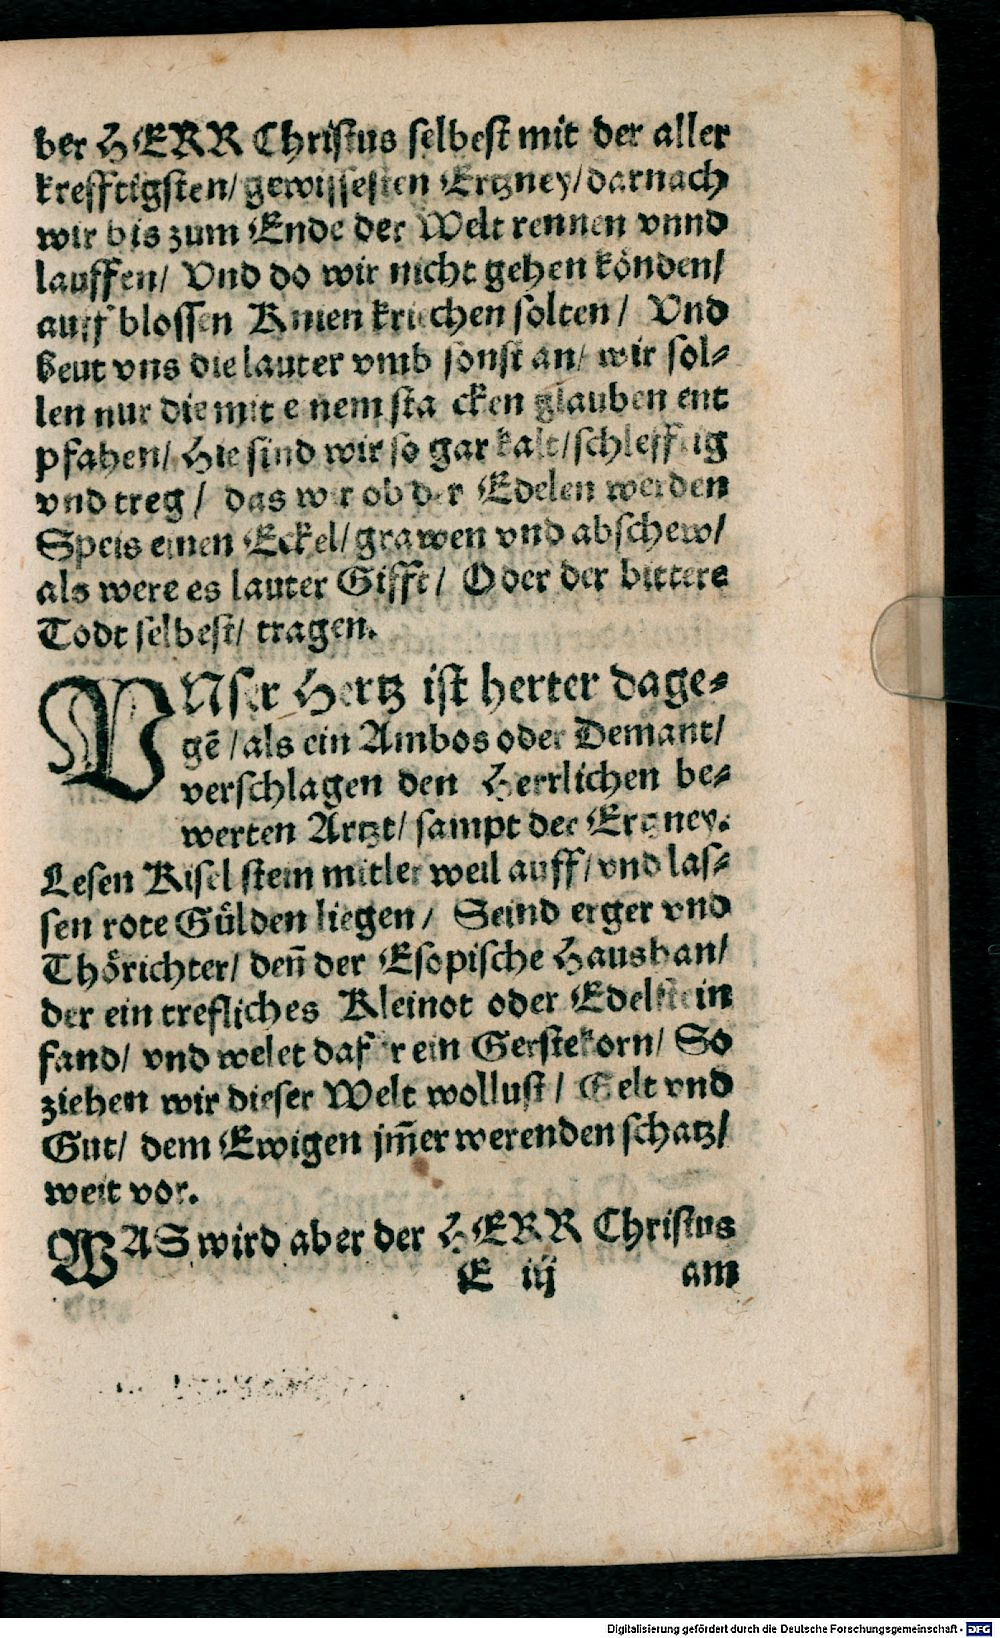 ber HERR Christus selbest mit der aller
krefftigsten/ gewissesten Ertzney/ darnach
wir bis zum Ende der Welt rennen vnnd
lauffen/ Vnd do wir nicht gehen könden/
auff blossen Knien kriechen solten/ Vnd
beut vns die lauter vmb sonst an/ wir sol-
len nur die mit einem starcken glauben ent
pfahen/ Hie sind wir so gar kalt/ schlefferig
vnd treg/ das wir ob der Edelen werden
Speis einen Eckel/ grawen vnd abschew/
als were es lauter Gifft/ Oder der bittere
Todt selbest/ tragen.
VNser Hertz ist herter dage-
gē/ als ein Ambos oder Demant/
verschlagen den Herrlichen be-
werten Artzt/ sampt der Ertzney.
Lesen Kisel stein mitler weil auff/ vnd las-
sen rote Gülden liegen/ Seind erger vnd
Thörichter/ deñ der Esopische Haushan/
der ein trefliches Kleinot oder Edelstein
fand/ vnd welet dafür ein Gerstekorn/ So
ziehen wir dieser Welt wollust/ Gelt vnd
Gut/ dem Ewigen jm̃er werenden schatz/
weit vor.
WAS wird aber der HERR Christus
E iij am
Digitalisierung gefördert durch die Deutsche Forschungsgemeinschaft - DFG